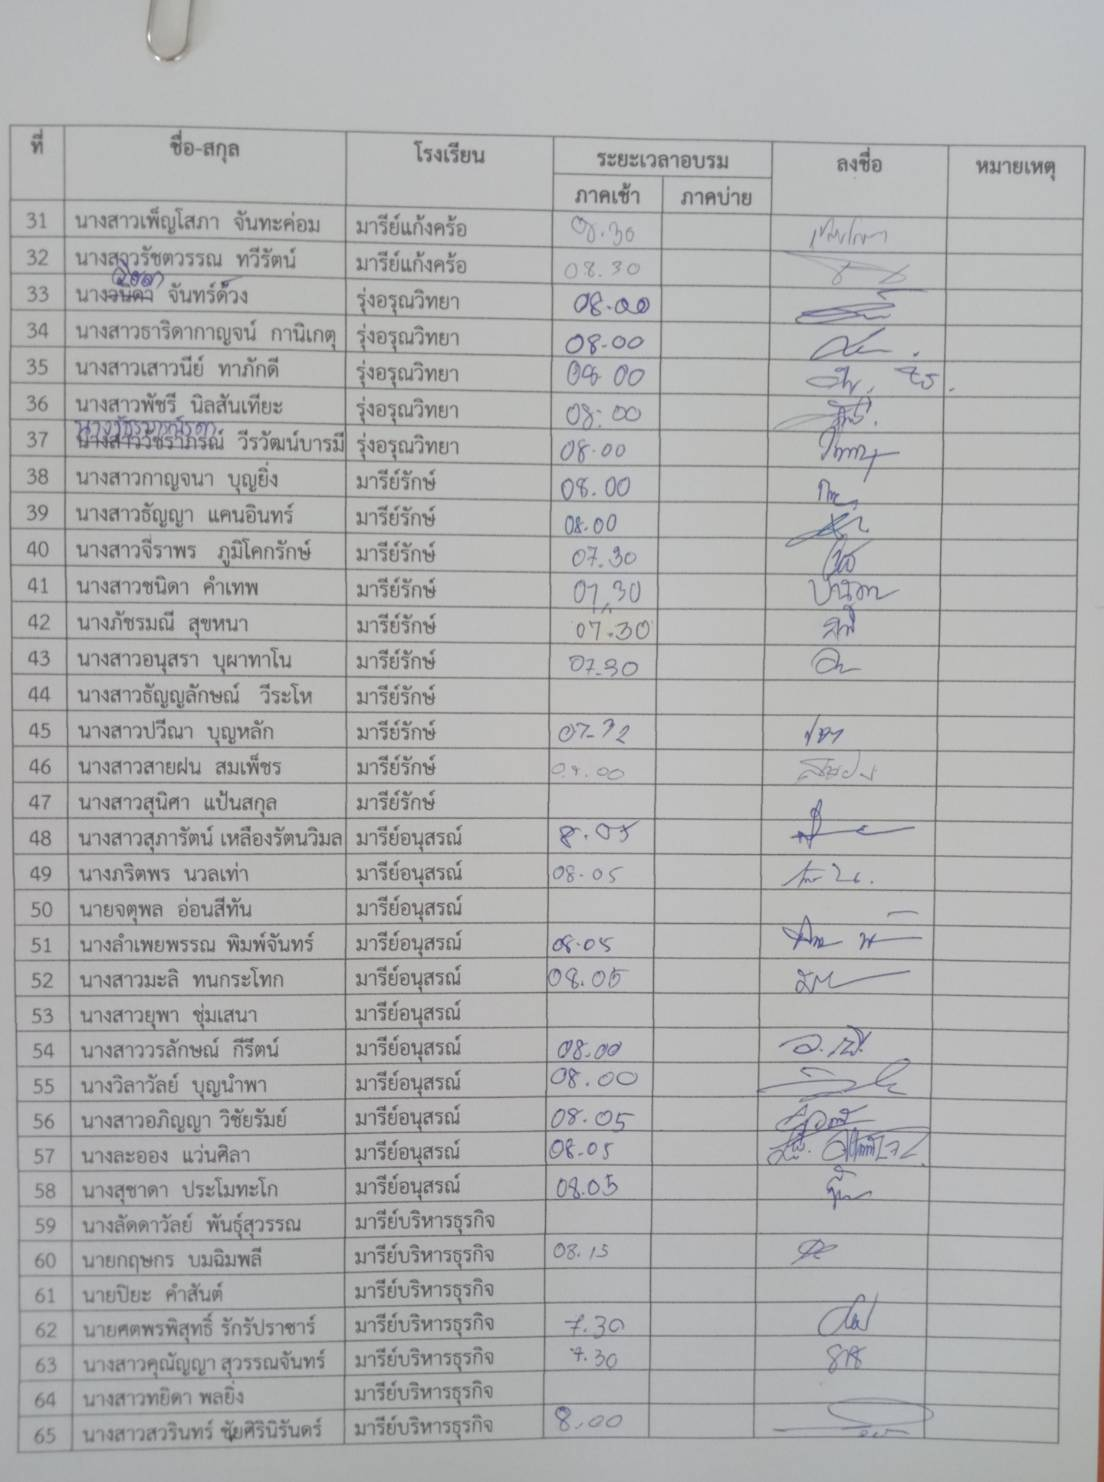 ที่ ชื่อ-สกุล โรงเรียน ระยะเวลาอบรม ลงชื่อ หมายเหตุ
ภาคเช้า ภาคบ่าย
31 นางสาวเพ็ญโสภา จันทะค่อม มารีย์แก้งคร้อ 08.30
32 นางสาวรัชตวรรณ ทวีรัตน์ มารีย์แก้งคร้อ 08.30
33 นางวนิดา จันทร์ด้วง รุ่งอรุณวิทยา 08.00
34 นางสาวธาริดากาญจน์ กานิเกตุ รุ่งอรุณวิทยา 08.00
35 นางสาวเสาวนีย์ ทาภักดี รุ่งอรุณวิทยา 08.00
36 นางสาวพัชรี นิลสันเทียะ รุ่งอรุณวิทยา 08.00
37 นางสาววัชราภรณ์ วีรวัฒน์บารมี รุ่งอรุณวิทยา 08.00
38 นางสาวกาญจนา บุญยิ่ง มารีย์รักษ์ 08.00
39 นางสาวธัญญา แคนอินทร์ มารีย์รักษ์ 08.00
40 นางสาวจีราพร ภูมิโคกรักษ์ มารีย์รักษ์ 07.30
41 นางสาวชนิดา คำเทพ มารีย์รักษ์ 07.30
42 นางภัชรมณี สุขหนา มารีย์รักษ์ 07.30
43 นางสาวอนุสรา บุผาทาโน มารีย์รักษ์ 07.30
44 นางสาวธัญญลักษณ์ วีระโห มารีย์รักษ์
45 นางสาวปวีณา บุญหลัก มารีย์รักษ์ 07.32
46 นางสาวสายฝน สมเพ็ชร มารีย์รักษ์
47 นางสาวสุนิศา แป้นสกุล มารีย์รักษ์
48 นางสาวสุภารัตน์ เหลืองรัตนวิมล มารีย์อนุสรณ์ 8.05
49 นางภริตพร นวลเท่า มารีย์อนุสรณ์ 08.05
50 นายจตุพล อ่อนสีทัน มารีย์อนุสรณ์
51 นางลำเพยพรรณ พิมพ์จันทร์ มารีย์อนุสรณ์ 08.05
52 นางสาวมะลิ ทนกระโทก มารีย์อนุสรณ์ 08.05
53 นางสาวยุพา ชุ่มเสนา มารีย์อนุสรณ์
54 นางสาววรลักษณ์ กีรีตน์ มารีย์อนุสรณ์ 08.00
55 นางวิลาวัลย์ บุญนำพา มารีย์อนุสรณ์ 08.00
56 นางสาวอภิญญา วิชัยรัมย์ มารีย์อนุสรณ์ 08.05
57 นางละออง แว่นศิลา มารีย์อนุสรณ์ 08.05
58 นางสุชาดา ประโมทะโก มารีย์อนุสรณ์ 08.05
59 นางลัดดาวัลย์ พันธุ์สุวรรณ มารีย์บริหารธุรกิจ
60 นายกฤษกร บมฉิมพลี มารีย์บริหารธุรกิจ 08.15
61 นายปิยะ คำสันต์ มารีย์บริหารธุรกิจ
62 นายศตพรพิสุทธิ์ รักรัปราชาร์ มารีย์บริหารธุรกิจ 7.30
63 นางสาวคุณัญญา สุวรรณจันทร์ มารีย์บริหารธุรกิจ 7.30
64 นางสาวทยิดา พลยิ่ง มารีย์บริหารธุรกิจ
65 นางสาวสวรินทร์ ชัยศิรินิรันดร์ มารีย์บริหารธุรกิจ 8.00